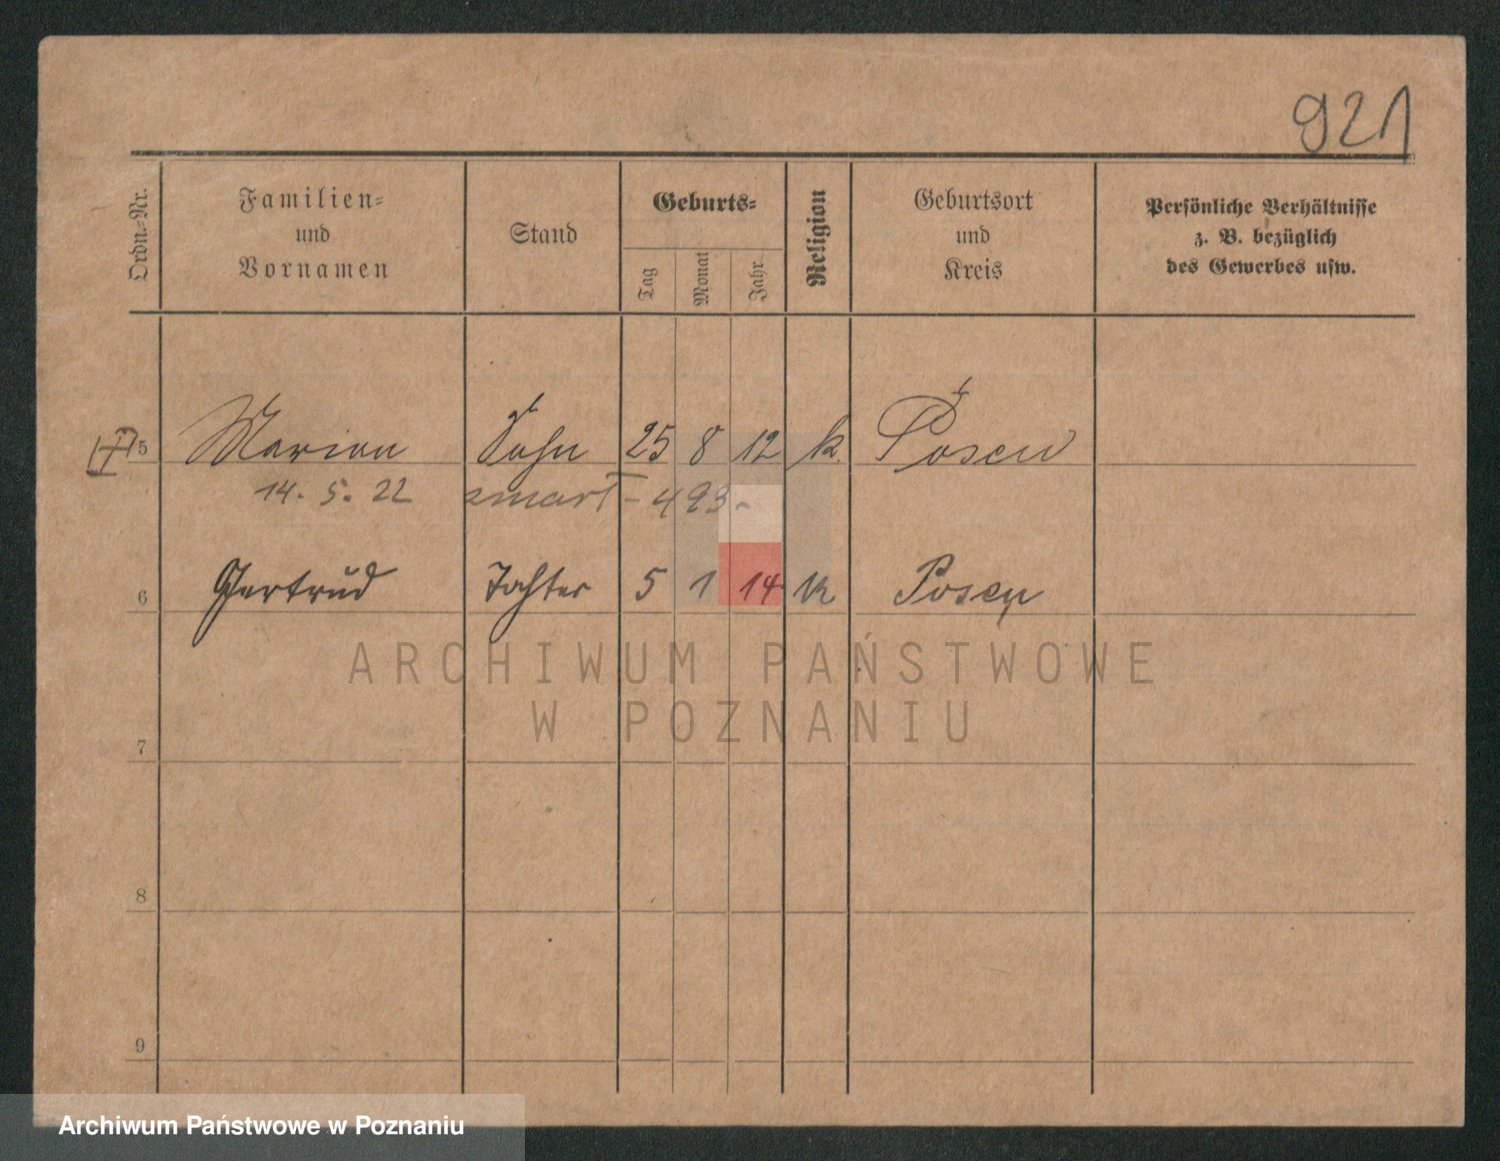 921
Ordn.-Nr. Familien- und Vornamen Stand Geburts- Tag Monat Jahr Religion Geburtsort und Kreis Persönliche Verhältnisse z. B. bezüglich des Gewerbes usw.
5 Marian Sohn 25 8 12 k. Posen
14. 5. 22 zmarł - 493 -
6 Gertrud Tochter 5 1 14 k Posen
ARCHIWUM PAŃSTWOWE
W POZNANIU
7
8
9
Archiwum Państwowe w Poznaniu